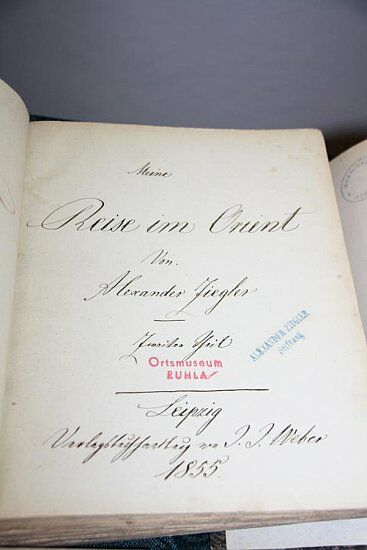 Meine
Reise im Orient
Von
Alexander Ziegler
Zweiter Theil
Ortsmuseum
RUHLA
ALEXANDER ZIEGLER
Stiftung
Leipzig
Verlagsbuchhandlung von J. J. Weber
1855.